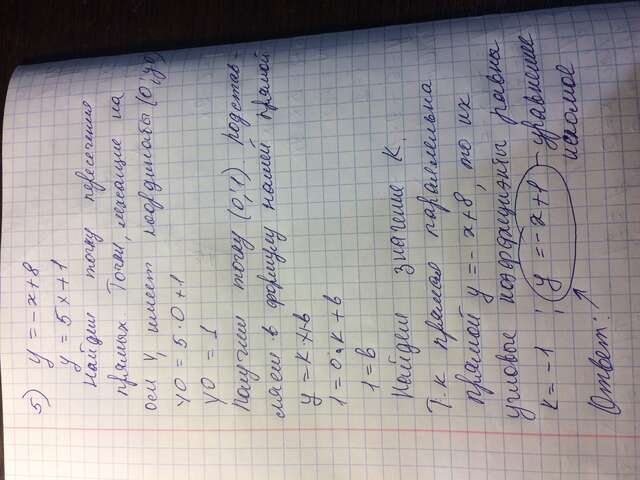 5) y = -x+8
y = 5x+1
Найдем точку пересечения
прямых. Точки, лежащие на
оси y, имеет координаты (0; y0)
y0 = 5·0+1
y0 = 1
Получим точку (0;1). Подстав-
ляем в формулу нашей прямой
y = kx+b
1 = 0·k+b
1 = b
Найдем значение k.
Т.к прямая параллельна
прямой y = -x+8, то их
угловые коэффициенты равны
k = -1 ; y = -x+1 - уравнение
искомое
Ответ: